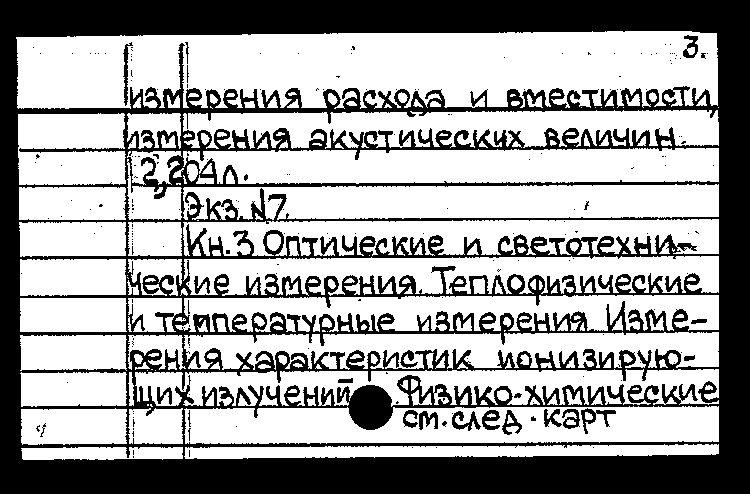 3.
измерения расхода и вместимости,
измерения акустических величин.
2,204л.
Экз. №7.
Кн.3 Оптические и светотехни-
ческие измерения. Теплофизические
и температурные измерения. Изме-
рения характеристик ионизирую-
щих излучений. Физико-химические
см. след. карт